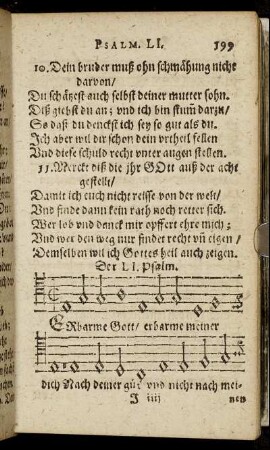 PSALM. LI. 199
10. Dein bruder muß ohn schmähung nicht
darvon/
Du schätzest auch selbst deiner mutter sohn.
Diß giebst du an; vnd ich bin stum̃ darzu/
So daß du denckst ich sey so gut als du.
Ich aber wil dir schon dein vrtheil fellen
Vnd diese schuld recht vnter augen stellen.
11. Merckt diß die jhr GOtt auß der acht
gestellt/
Damit ich euch nicht reisse von der welt/
Vnd finde dann kein rath noch retter sich.
Wer lob vnd danck mir opffert ehre mich;
Vnd wer den weg nur findet recht vñ eigen/
Demselben wil ich Gottes heil auch zeigen.
Der LI. Psalm.
ERbarme Gott/ erbarme meiner
dich Nach deiner vnd nicht nach mei-
J iiij nen